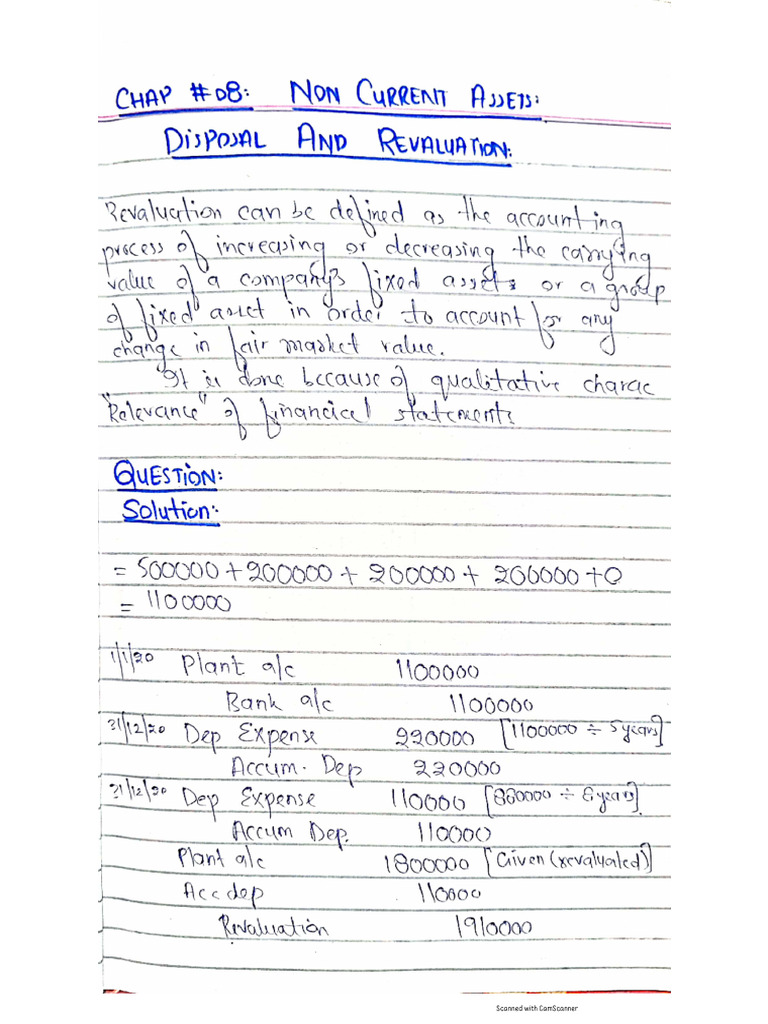 CHAP #08: NON CURRENT ASSETS:
DISPOSAL AND REVALUATION:
Revaluation can be defined as the accounting
process of increasing or decreasing the carrying
value of a company's fixed assets or a group
of fixed asset in order to account for any
change in fair market value.
It is done because of qualitative charac
"Relevance" of financial statements
QUESTION:
Solution:
= 500000 + 200000 + 200000 + 200000 + 0
= 1100000
1/1/20 Plant a/c 1100000
Bank a/c 1100000
31/12/20 Dep Expense 220000 [1100000 ÷ 5years]
Accum. Dep 220000
31/12/20 Dep Expense 110000 [880000 ÷ 8years]
Accum Dep. 110000
Plant a/c 1800000 [Given (revaluated)]
Acc dep 110000
Revaluation 1910000
Scanned with CamScanner